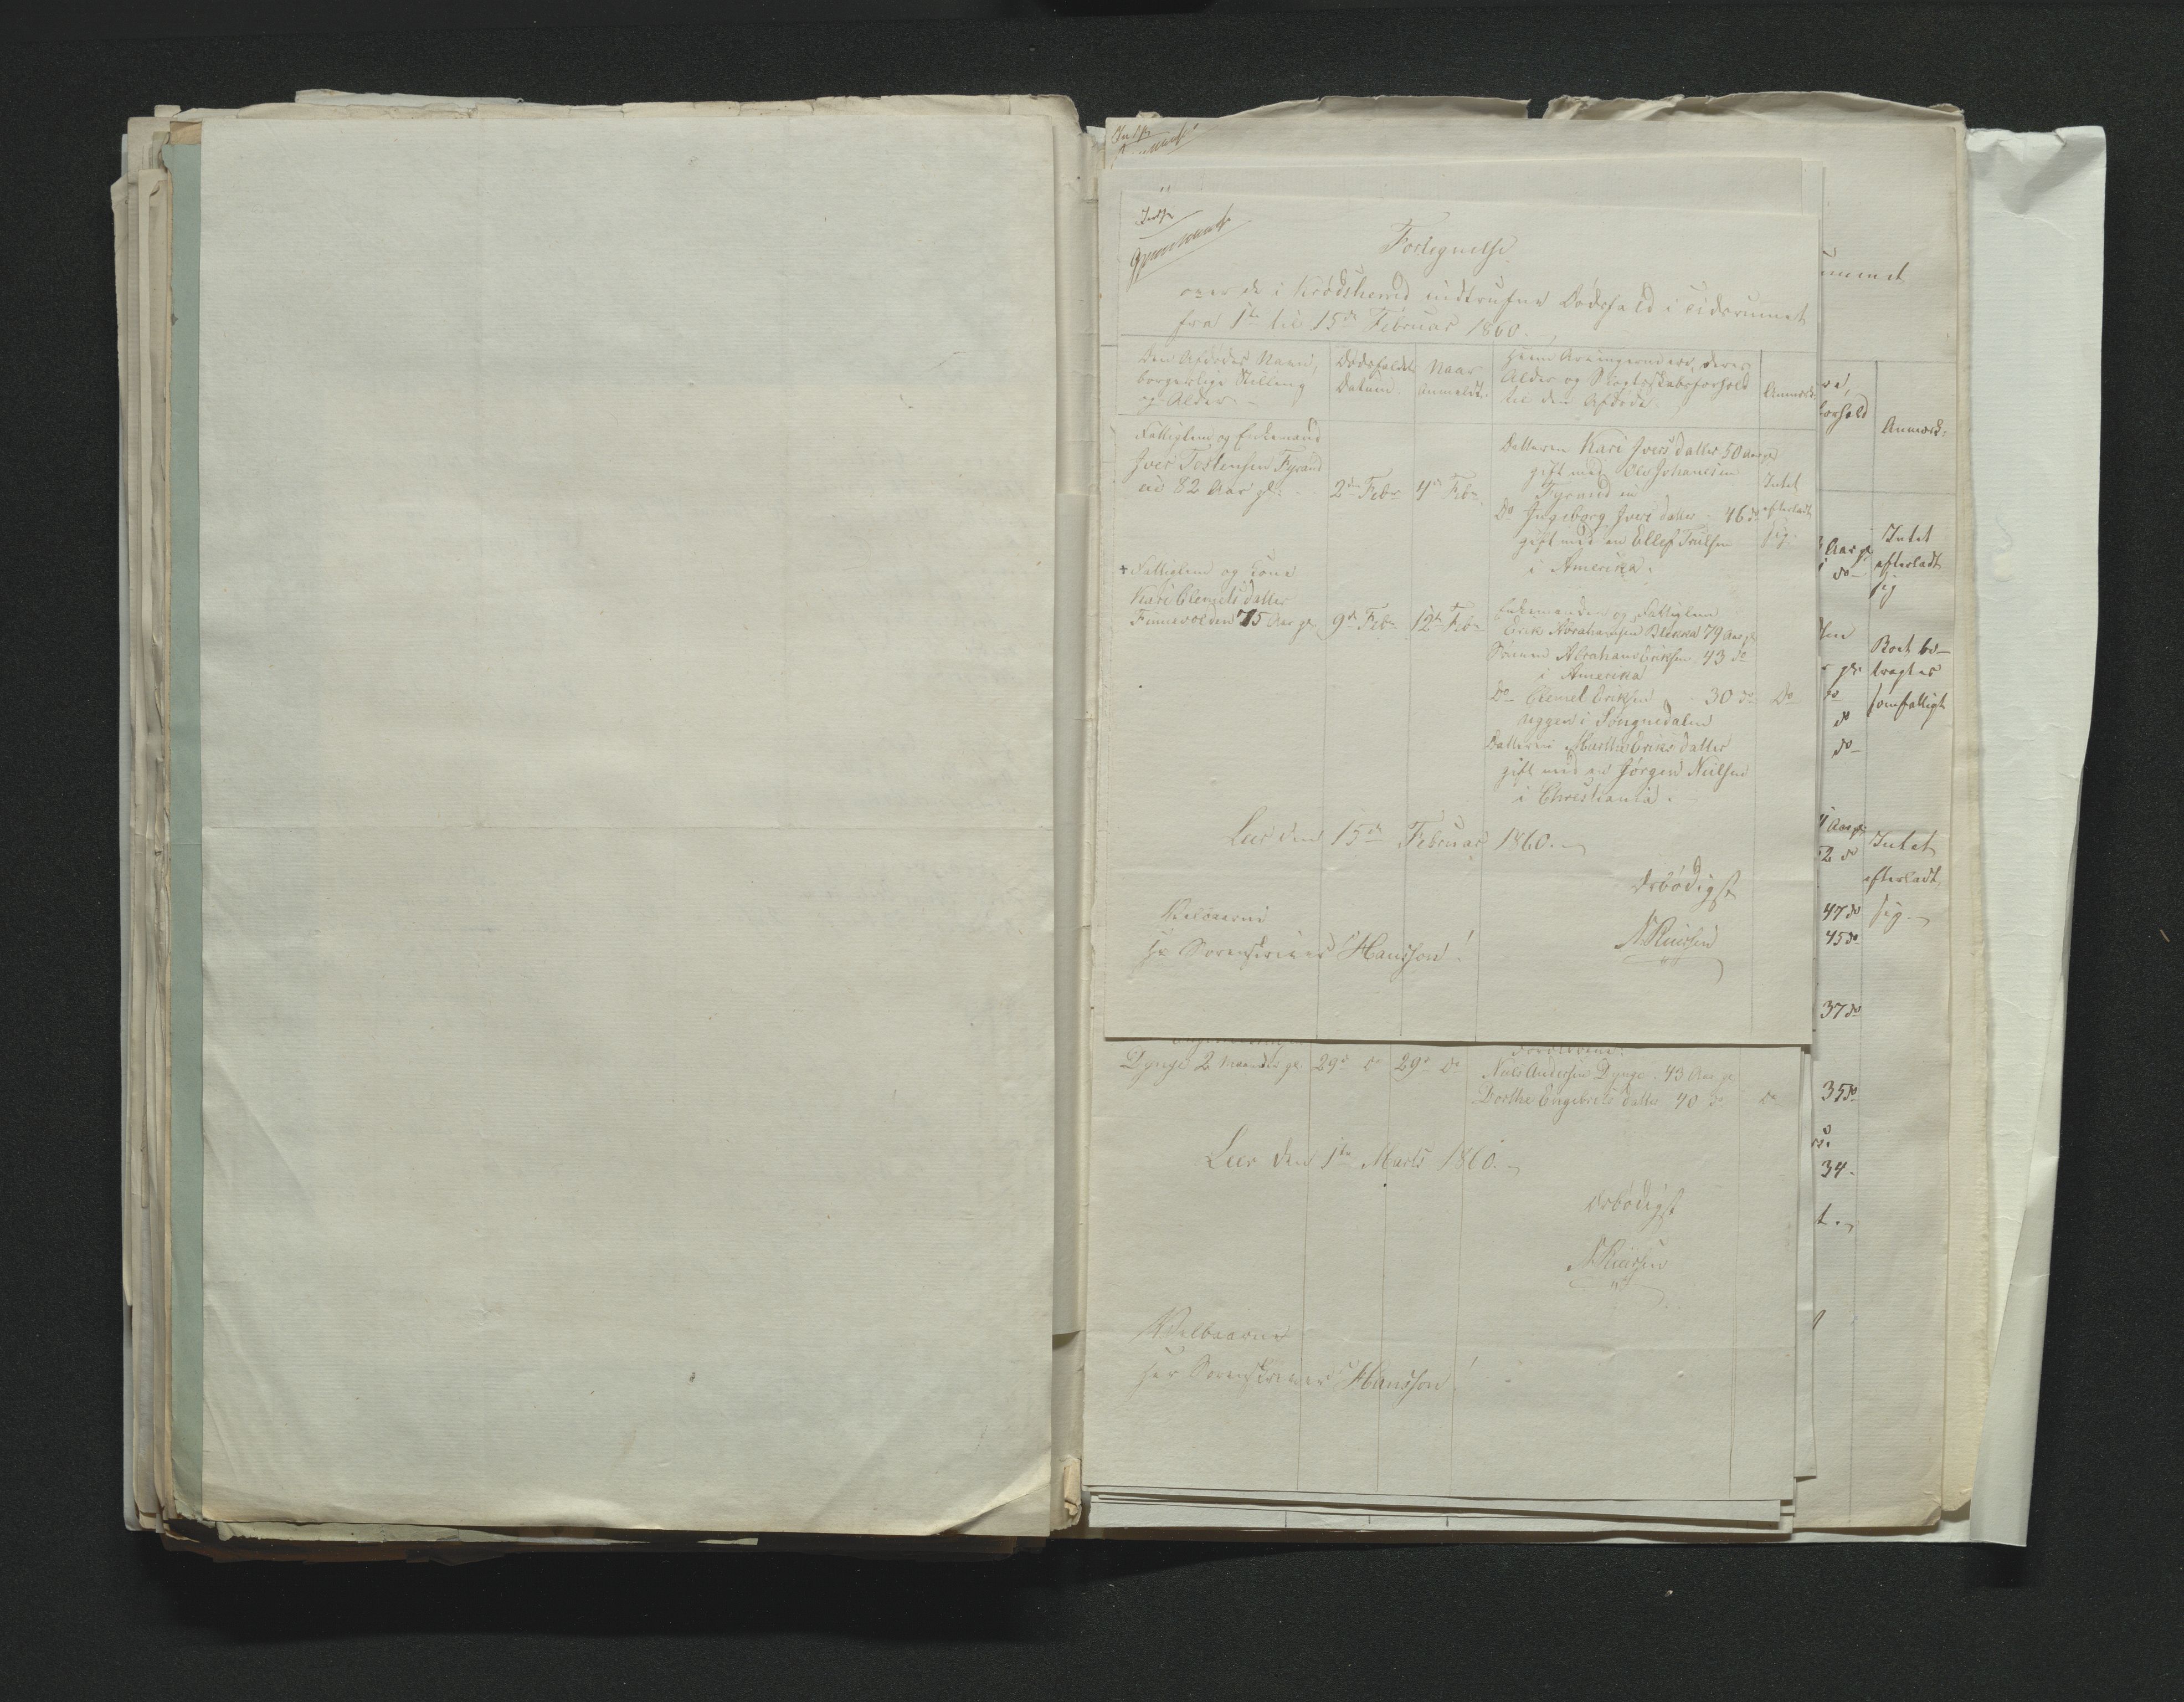 Fortegnelse
over de i Krødsherred indtrufne Dødsfald i Tidsrummet
fra 1ste til 15de Februar 1860.
Den Afdødes Navn,
borgerlige Stilling
og Alder.
Dødsfaldets
Datum.
Naar
Anmeldt.
Hvem Arvingerne ere, deres
Alder og Slægtskabsforhold
til den Afdøde.
Anmærk:
Fattiglem og Enkemand
Iver Torstensen Fyrand
82 Aar gl.
2den Febr
4de Febr
Datteren Kari Iversdatter 50 Aar gl
gift med Ole Johannesen
Fyrand
Do Ingeborg Iversdatter - 46 do
gift med en Ellef Trulsen
i Amerika.
Intet
efterladt
sig.
+ Fattiglem og Kone
Kari Clemetsdatter
Finnevolden 75 Aar gl
9de Febr
12te Febr
Enkemanden og Fattiglem
Erik Abrahamsen Blekka 79 Aar gl
Sønnen Abraham Eriksen 43 do
i Amerika
Do Clemet Eriksen - 30 do
i Sognedalen
Datteren Marthe Eriksdatter
gift med en Jørgen Nielsen
i Christiania.
Do
Leer den 15de Februar 1860.
Ærbødigst
Velbaarne
Hr Sorenskriver Hansson!
Dynge 2 Maaneder gl. 29de do 29de do
Niels Andersen Dynge 43 Aar gl
Dorthe Engebretsdatter 40 do do
Leer den 1ste Marts 1860.
Ærbødigst
Velbaarne
Herr Sorenskriver Hansson!
Anmærk:
Intet
efterladt
sig
Boet be-
tragtes
som fattigt
Intet
efterladt
sig.
47 do
45 do
37 do
35 do
34.